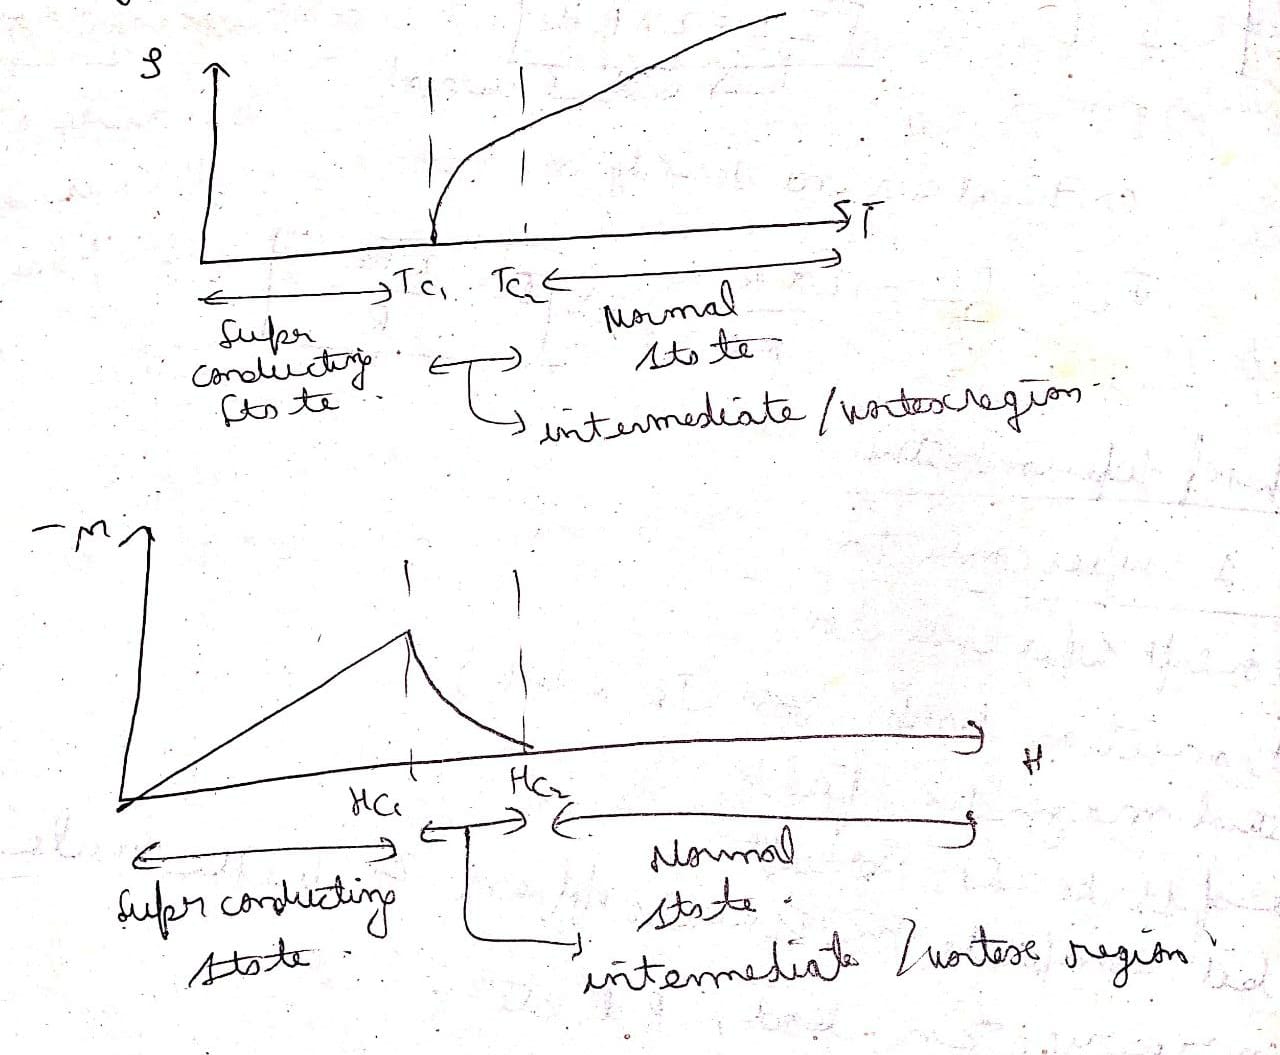 ρ
T
Tc₁ Tc₂
Super
conducting
state
Normal
state
intermediate / vortex region
-M
H
Hc₁
Hc₂
Super conducting
state
Normal
state
intermediate / vortex region